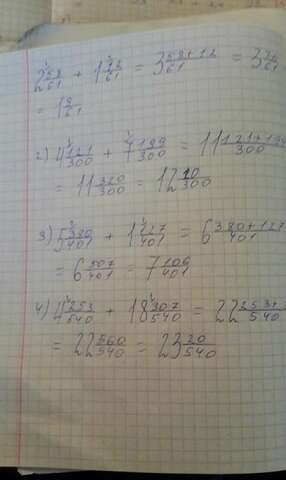 2 58/61 + 1 12/61 = 3 58+12/61 = 3
= 1 9/61
2) 4 121/300 + 7 199/300 = 11 121+19/300
= 11 320/300 = 12 20/300
3) 5 380/401 + 1 127/401 = 6 380+127/401
= 6 507/401 = 7 106/401
4) 4 253/540 + 18 307/540 = 22 253+/540
= 22 560/540 = 23 20/540